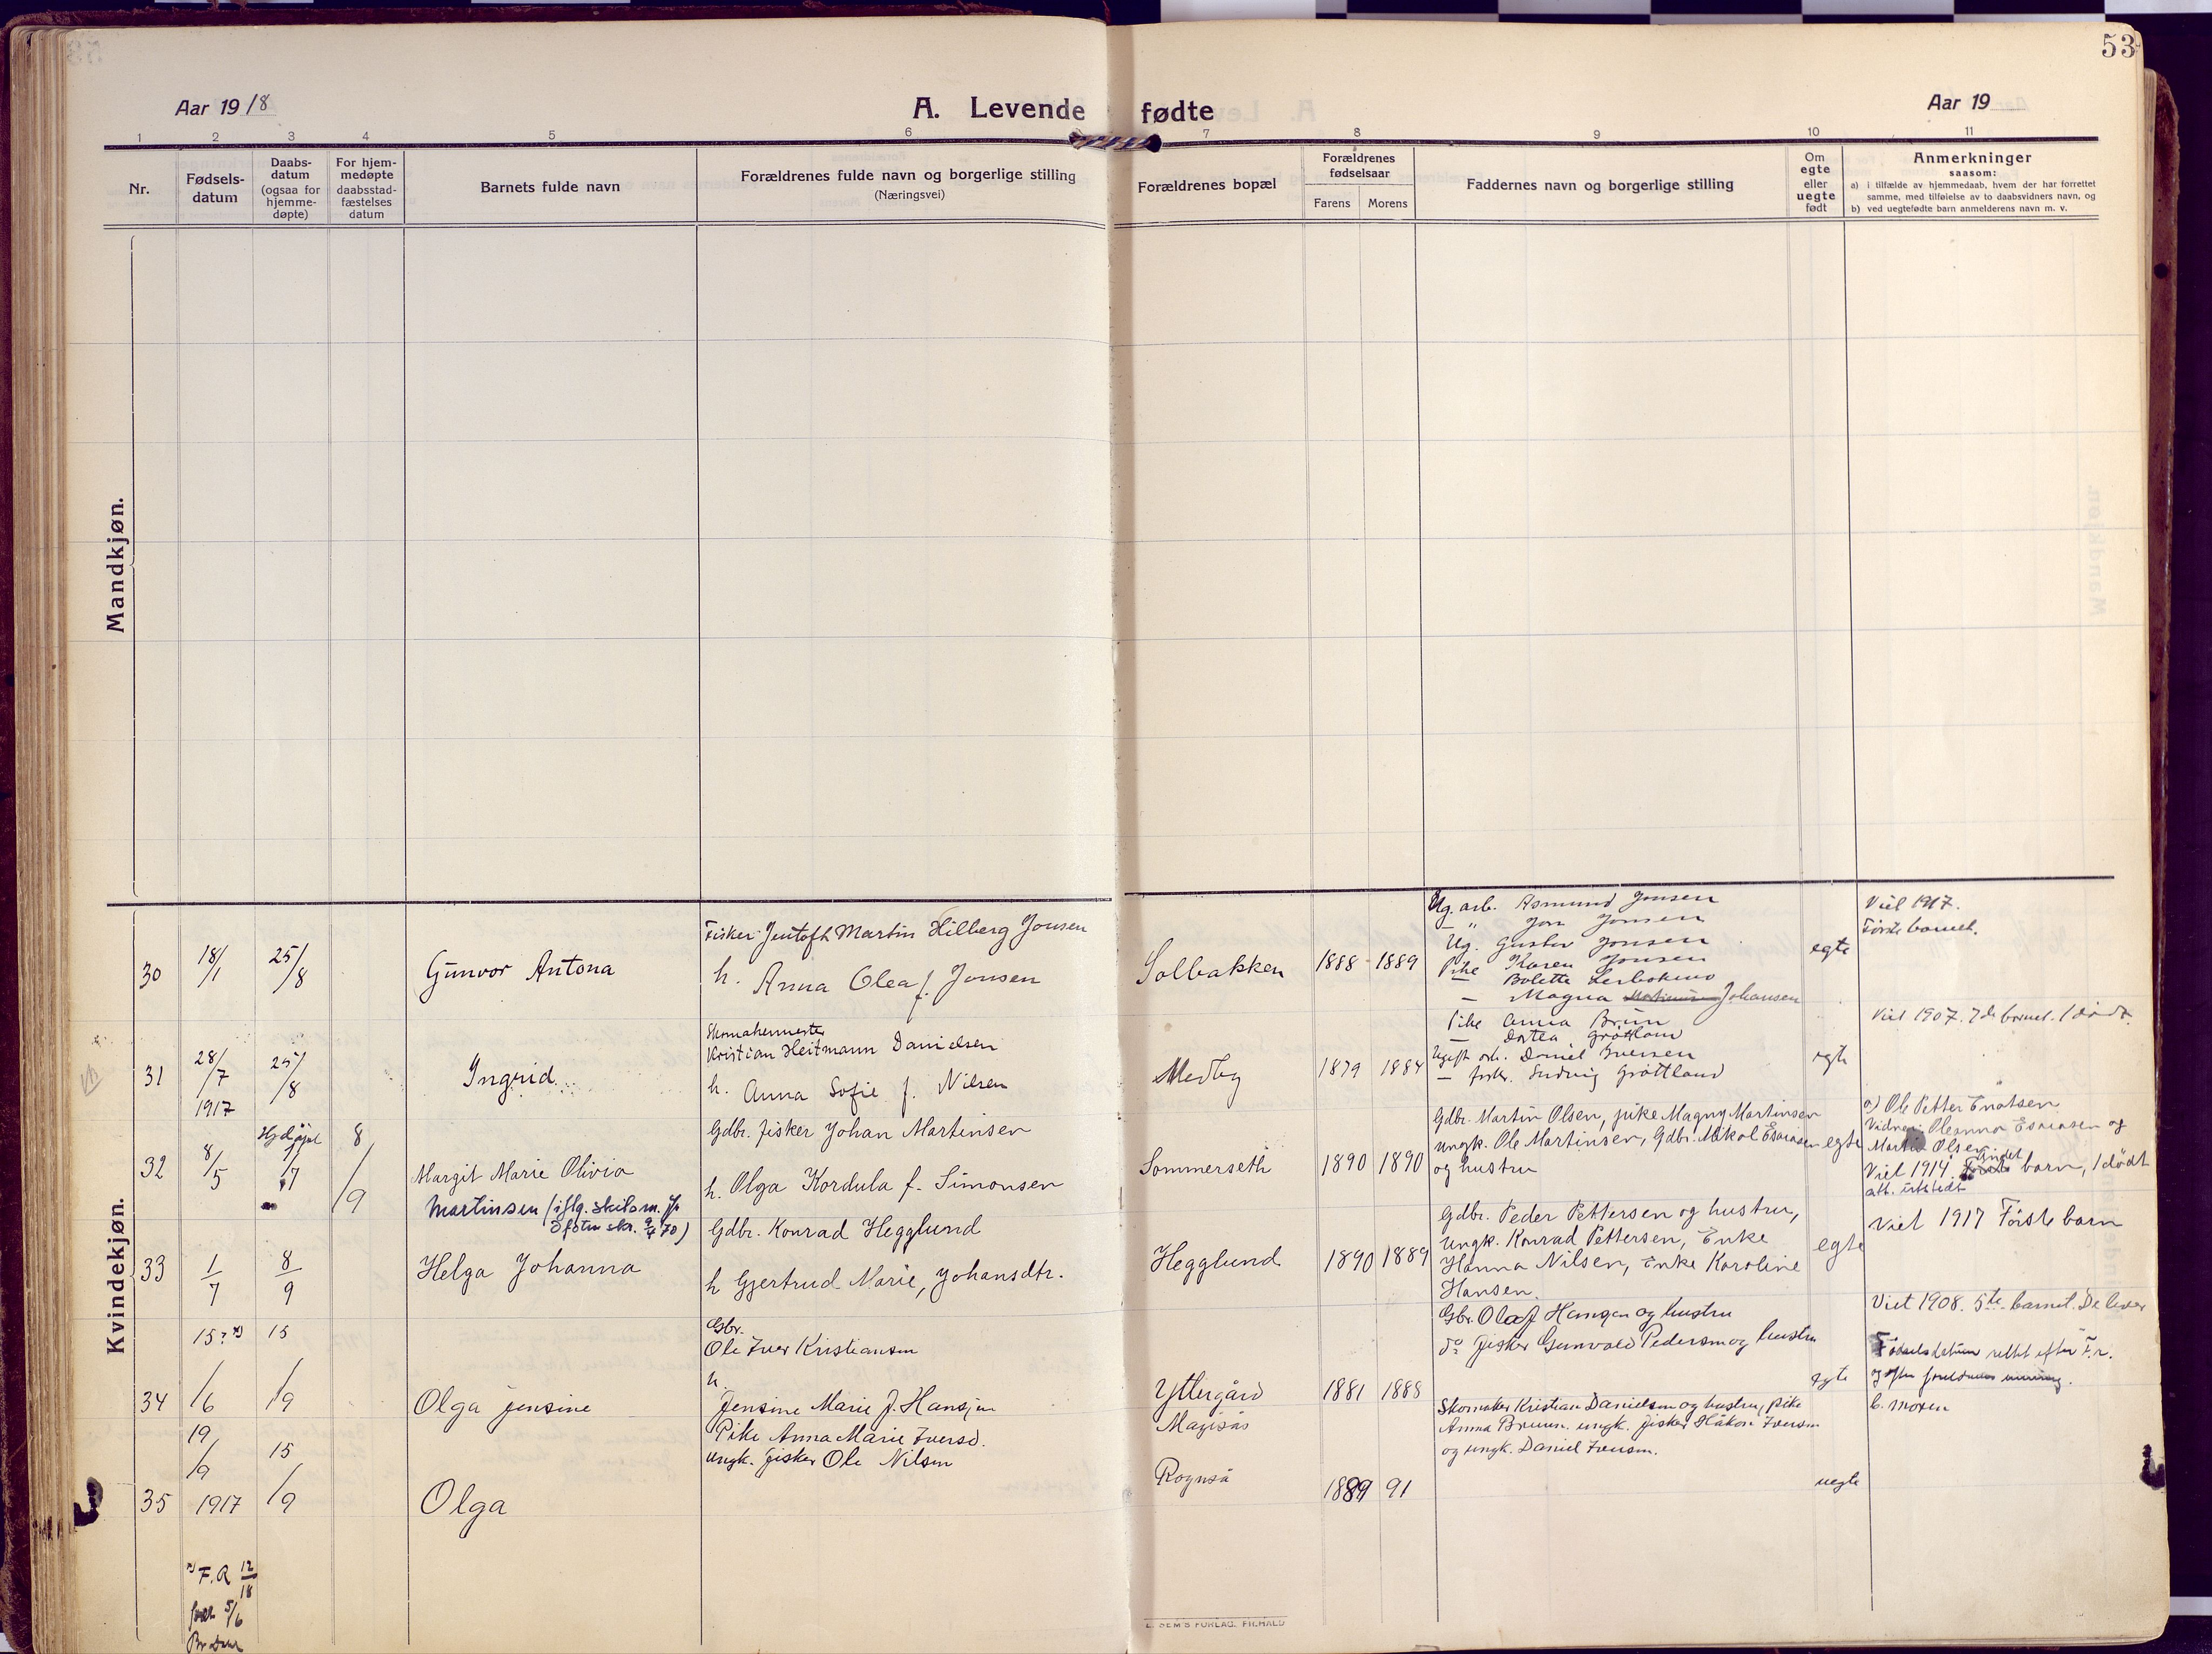 53
Aar 1918
A. Levende fødte
Aar 19
1 2 3 4 5 6 7 8 9 10 11
Nr.
Fødsels-
datum
Daabs-
datum
(ogsaa for
hjemme-
døpte)
For hjem-
medøpte
daabsstad-
fæstelses
datum
Barnets fulde navn
Forældrenes fulde navn og borgerlige stilling
(Næringsvei)
Forældrenes bopæl
Forældrenes
fødselsaar
Farens Morens
Faddernes navn og borgerlige stilling
Om
egte
eller
uegte
født
Anmerkninger
saasom:
a) i tilfælde av hjemmedaab, hvem der har forrettet
samme, med tilføielse av to daabsvidners navn, og
b) ved uegtefødte barn anmelderens navn m. v.
Mandkjøn.
Kvindekjøn.
30
18/1
25/8
Gunvor Antona
Fisker Jentoft Martin Hilberg Jonsen
h. Anna Olea f. Jonsen
Solbakken
1888 1889
Ug. arb. Asmund Jonsen
— " Jon Jonsen
Ug. Gustav Jonsen
Pike Karen Jonsen
— Bolette
— Magna Johansen
egte
Viet 1917.
Første barnet.
31
28/7
1917
25/8
Ingrid
Skomakermester
Kristian Heitmann Danielsen
h. Anna Sofie f. Nilsen
Medby
1879 1884
Pike Anna Brun
— Dortea Grøttland
Ugift arb. Daniel Iversen
— fisk. Ludvig Grøttland
egte
Viet 1907. 7de barnet. 1 død.
32
8/5
Hjdøpt
/7
8/9
Margit Marie Olivia
Martinsen (iflg. skilsm.
Ofoten skr. 9/4 70)
Gdbr. fisker Johan Martinsen
h. Olga Kordula f. Simonsen
Sommerseth
1890 1890
Gdbr. Martin Olsen, pike Magny Martinsen
ungk. Ole Martinsen, Gdbr. Mikal Esaiasen
og hustru
egte
a) Ole Petter Enoksen
Vidner: Oleanna Esaiasen og
Martin Olsen
Viet 1914. Andet barn, 1 dødt
att. utstedt
33
1/7
8/9
Helga Johanna
Gdbr. Konrad Hegglund
h Gjertrud Marie, Johansdtr.
Hegglund
1890 1889
Gdbr. Peder Pettersen og hustru,
Ungk. Konrad Pettersen, Enke
Hanna Nilsen, Enke Karoline
Hansen.
egte
Viet 1917 Første barn
34
15?*)
/6
15
/9
Olga Jensine
Gbr.
Ole Iver Kristiansen
h.
Jensine Marie f. Hansen
Yttergård
1881 1888
Gbr. Olaf Hansen og hustru
do fisker Gunvald Pedersen og hustru
egte
Viet 1908. 5te barnet. De lever
Fødselsdatum rettet efter F.r.
og efter foreldrenes mening.
35
19/9
1917
15/9
Olga
Pike Anna Marie Iversd.
ungk. fisker Ole Nilsen
Magisås
Rognså
1889 91
Skomaker Kristian Danielsen og hustru, pike
Anna Bruun, ungk. fisker Håkon Iversen
og ungk. Daniel Iversen.
uegte
b. moren
*) F.R 12/18
født 5/6
E. SEM'S FORLAG, FR.HALD